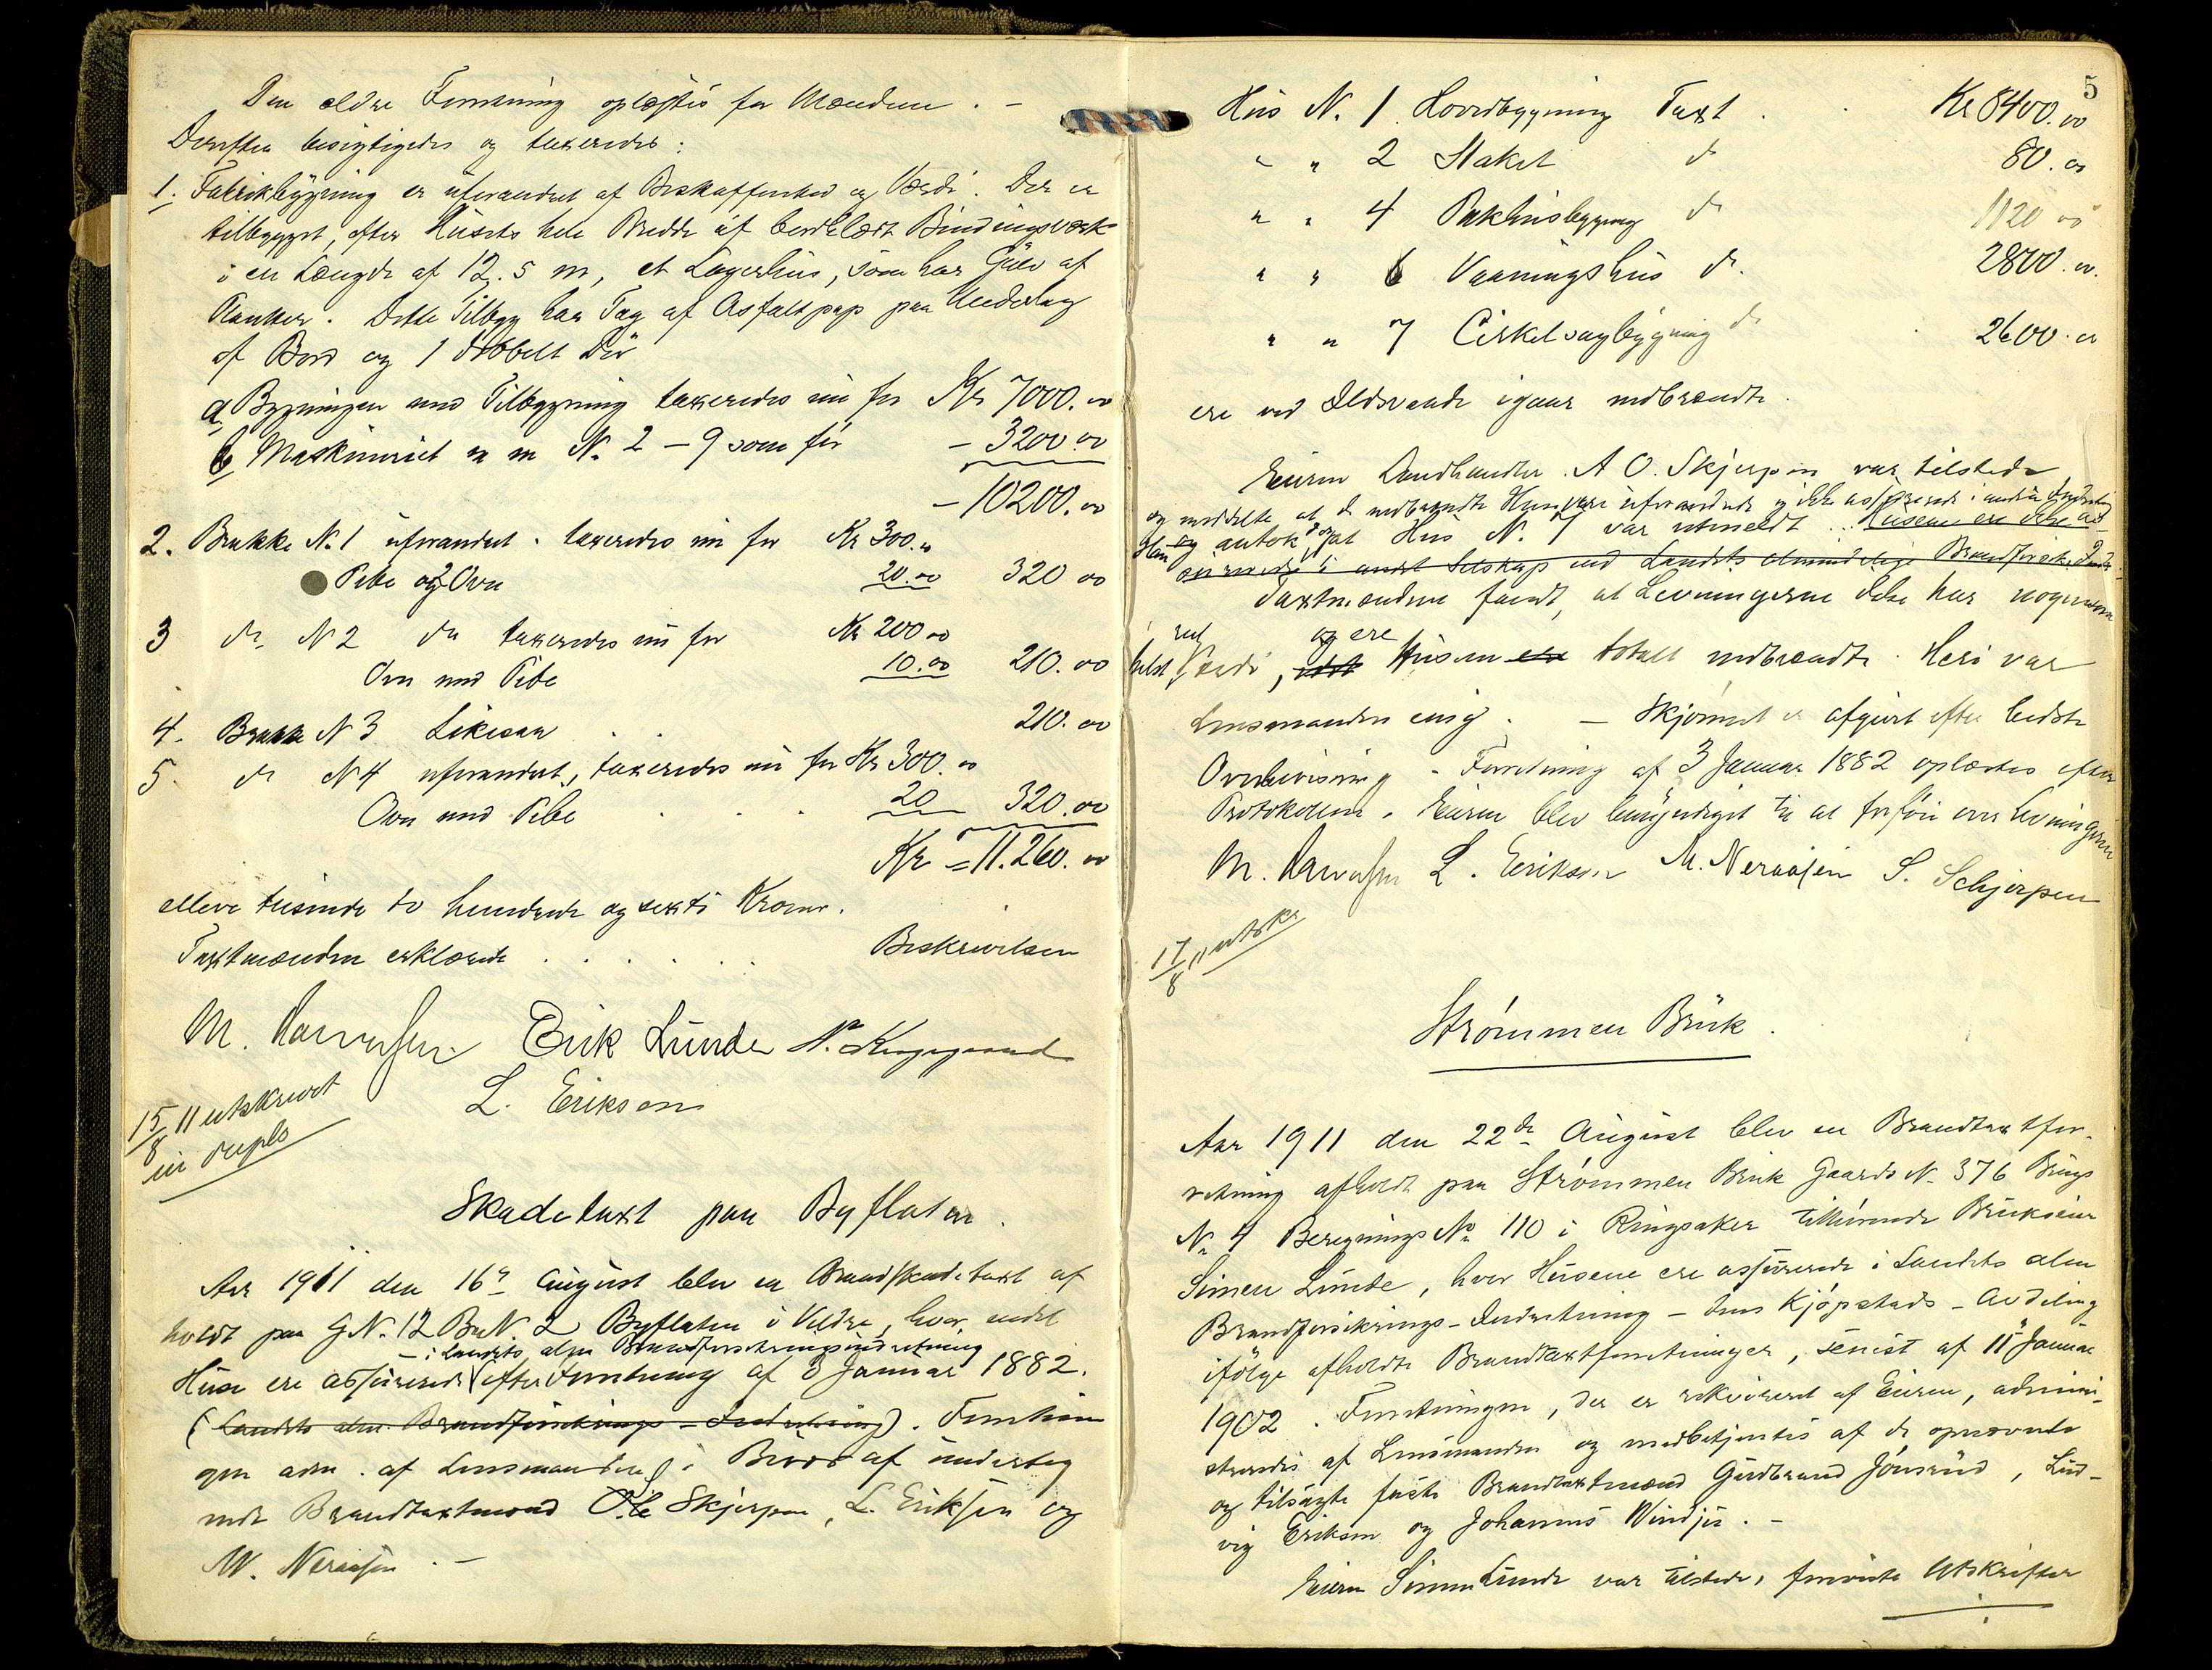 Den ældre Forretning oplæstes for Mændene . –
Derefter besigtigedes og taxeredes :
1. Fabrikbygning er uforandret af Beskaffenhed og Værdi. Der er
tilbygget, efter Husets hele Bredde af bordklædt Bindingsværk
i en Længde af 12.5 m, et Lagerhus, som har Gulv af
Planker. Dette Tilbyg har Tag af Asfaltpap paa Underlag
af Bord og 1 dobbelt Dør
a, Bygningen med Tilbygning taxeredes nu for Kr 7000.00
b, Maskineriet m m N. 2 – 9 som før – 3200.00
– 10200.00
2. Brakke No 1 uforandret . taxeredes nu for Kr 300.00
Pibe og 2 Ovn 20.00 320 00
3 do N 2 do taxeredes nu for Kr 200 00
Ovn med Pibe 10.00 210.00
4. Brakke N 3 Likesaa . . 210.00
5. do N 4 uforandret, taxeredes nu for Kr 300.00
Ovn med Pibe . . 20 320.00
Kr = 11.260.00
elleve tusinde to hundrede og sexti Kroner.
Taxtmændene erklærede . . . . . . Beskrivelsen
M. Erik Lunde N.
L. Eriksen
15/8 11 utskrevet
in duplo
Skadetaxt paa Byflaten .
Aar 1911 den 16de August blev en Brandskadetaxt af
holdt paa G.N. 12 BrN. 2 Byflaten i Veldre, hvor endel
– i Landets alm Brandforsikringsindretning
Huse ere assurerede efter Forretning af 3 Januar 1882.
(i Landets alm. Brandforsikrings – Indretning). Forretnin
gen adm. af Lensmanden i Biveær af underteg
nede Brandtaxtmænd Ole Skjerpen, L. Eriksen og
M. Neraasen . –
5
Hus N. 1. Hovedbygning Taxt . Kr 8400.00
" " 2 Staket do 80.00
" " 4 Pakhusbygning do 1120 00
" " 6 Vaaningshus do. 2800.00.
" " 7 Cirkelsagbygning do 2600.00
ere ved Ildsvaade igaar nedbrændte.
Eieren Landhandler A O. Skjerpen var tilstede
og meddelte at de nedbrændte Huse vare uforandrede og ikke assurerede i anden Indretn.
Han og antok ogsaa at Hus N. 7 var utmeldt . . Husene ere ikke as
surerede i andet Selskap end Landets Almindelige Brandforsikr. Indr.
Taxtmændene fandt, at Levningerne ikke har nogensom
helst reel Værdi, og ere Husene ere totalt nedbrændte. Heri var
Lensmanden enig . – Skjønnet er afgivet efter bedste
Overbevisning . Forretning af 3 Januar 1882 oplæstes efter
Protokollen . Eieren blev bemyndiget til at forføie over Levningerne
M. L. Eriksen M. Neraasen S. Schjerpen
17/8 11 utskr
Strømmen Bruk .
Aar 1911 den 22de August blev en Brandtaxtfor-
retning afholdt paa Strømmen Bruk Gaards N. 376 Brugs
No 4 Beregnings No 110 i Ringsaker tilhørende Brukseier
Simen Lunde, hvor Husene ere assurerede i Landets alm
Brandforsikrings – Indretning – dens Kjøpstads – Avdeling
ifølge afholdte Brandtaxtforretninger, senest af 11 Januar
1902 . Forretningen, der er rekvireret af Eieren, admini-
streredes af Lensmanden og medbetjentes af de opnævnte
og tilsagte faste Brandtaxtmænd Gudbrand Jonsrud, Lud-
vig Eriksen og Johannes Windju . –
Eieren Simen Lunde var tilstede, foreviste Utskrifter